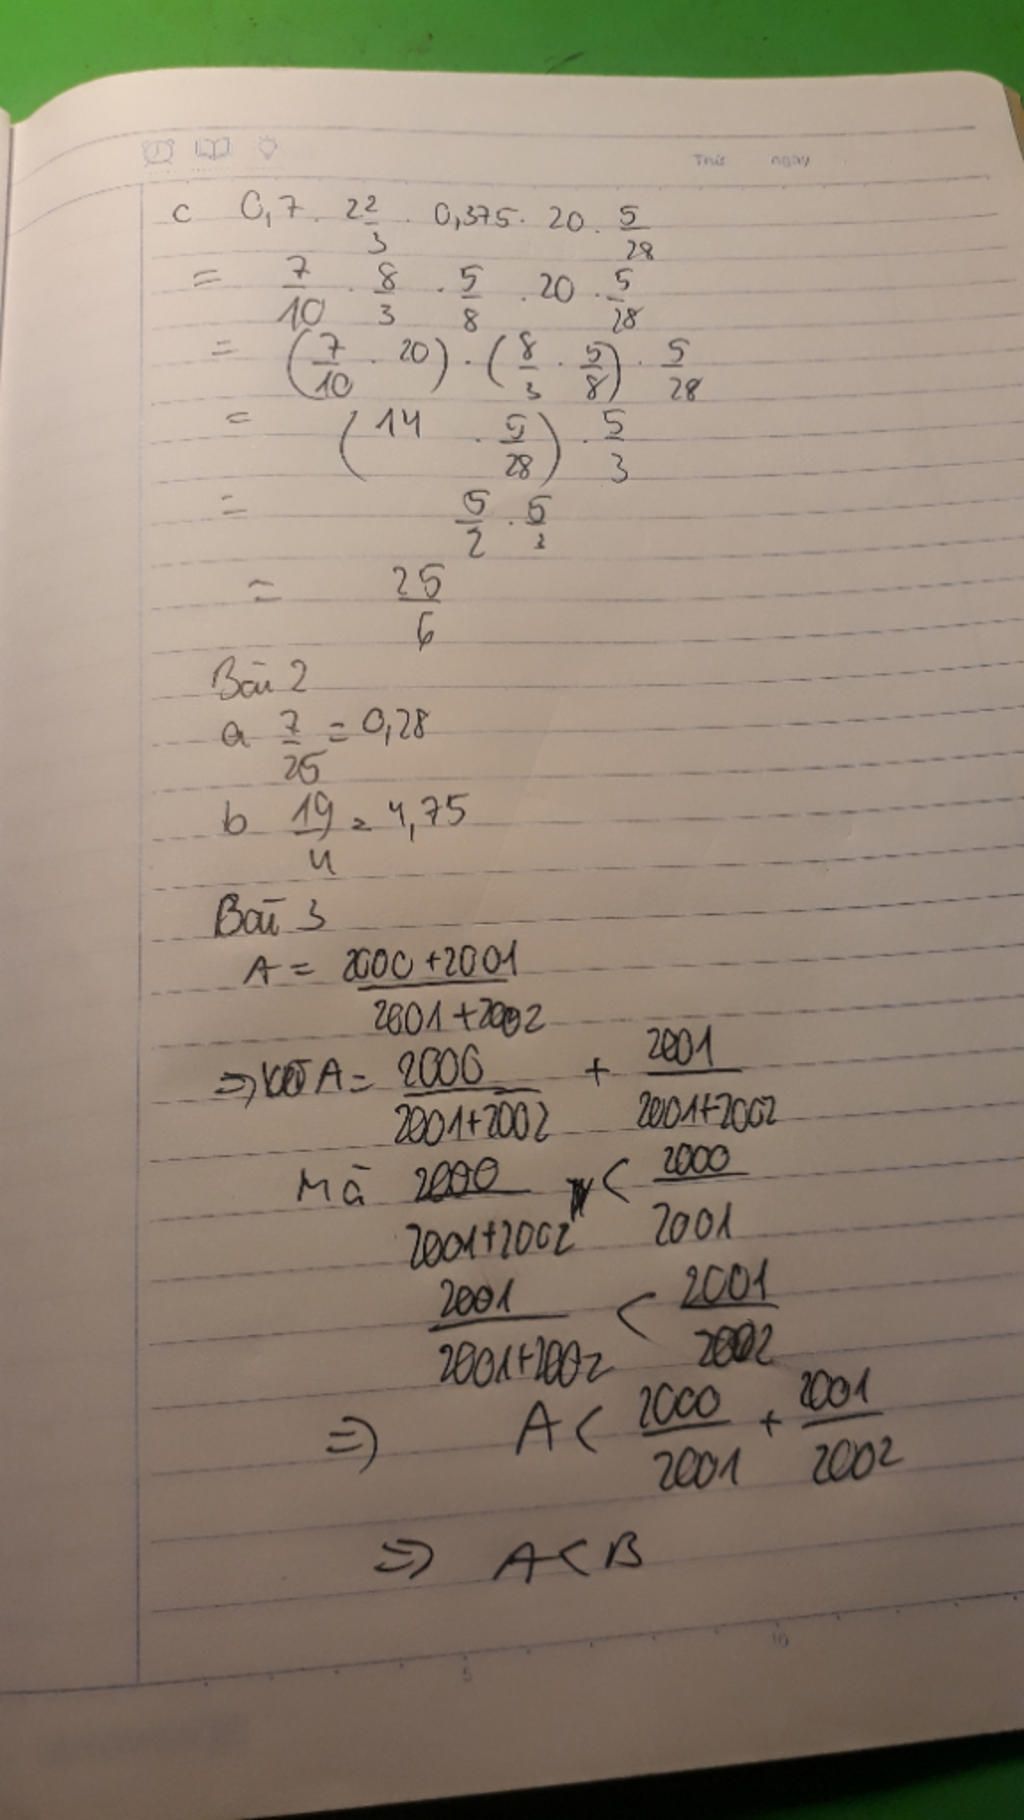 Thứ ngày
c 0,7 . 2 2/3 . 0,375 . 20 . 5/28
= 7/10 . 8/3 . 5/8 . 20 . 5/28
= (7/10 . 20) . (8/3 . 5/8) . 5/28
= (14 . 5/28) . 5/3
= 5/2 . 5/3
= 25/6
Bài 2
a 7/25 = 0,28
b 19/4 = 4,75
Bài 3
A = (2000+2001)/(2001+2002)
=> A = 2000/(2001+2002) + 2001/(2001+2002)
Mà 2000/(2001+2002) < 2000/2001
2001/(2001+2002) < 2001/2002
=> A < 2000/2001 + 2001/2002
=> A < B
5 10